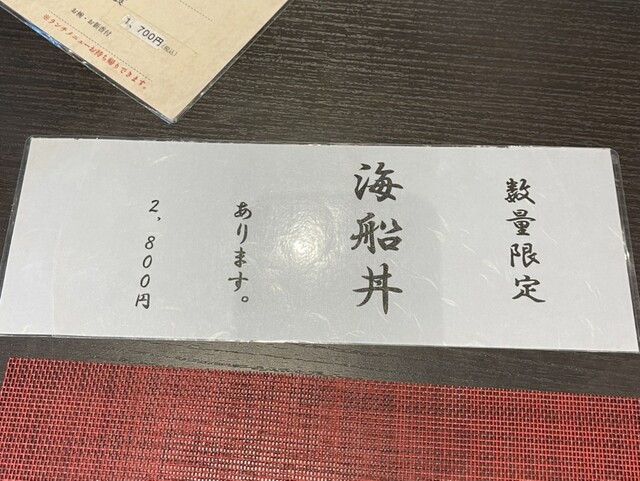 お椀・お新香付
1,700円(税込)
※ランチメニューお持ち帰りできます。
数量限定
海船丼
あります。
2,800円